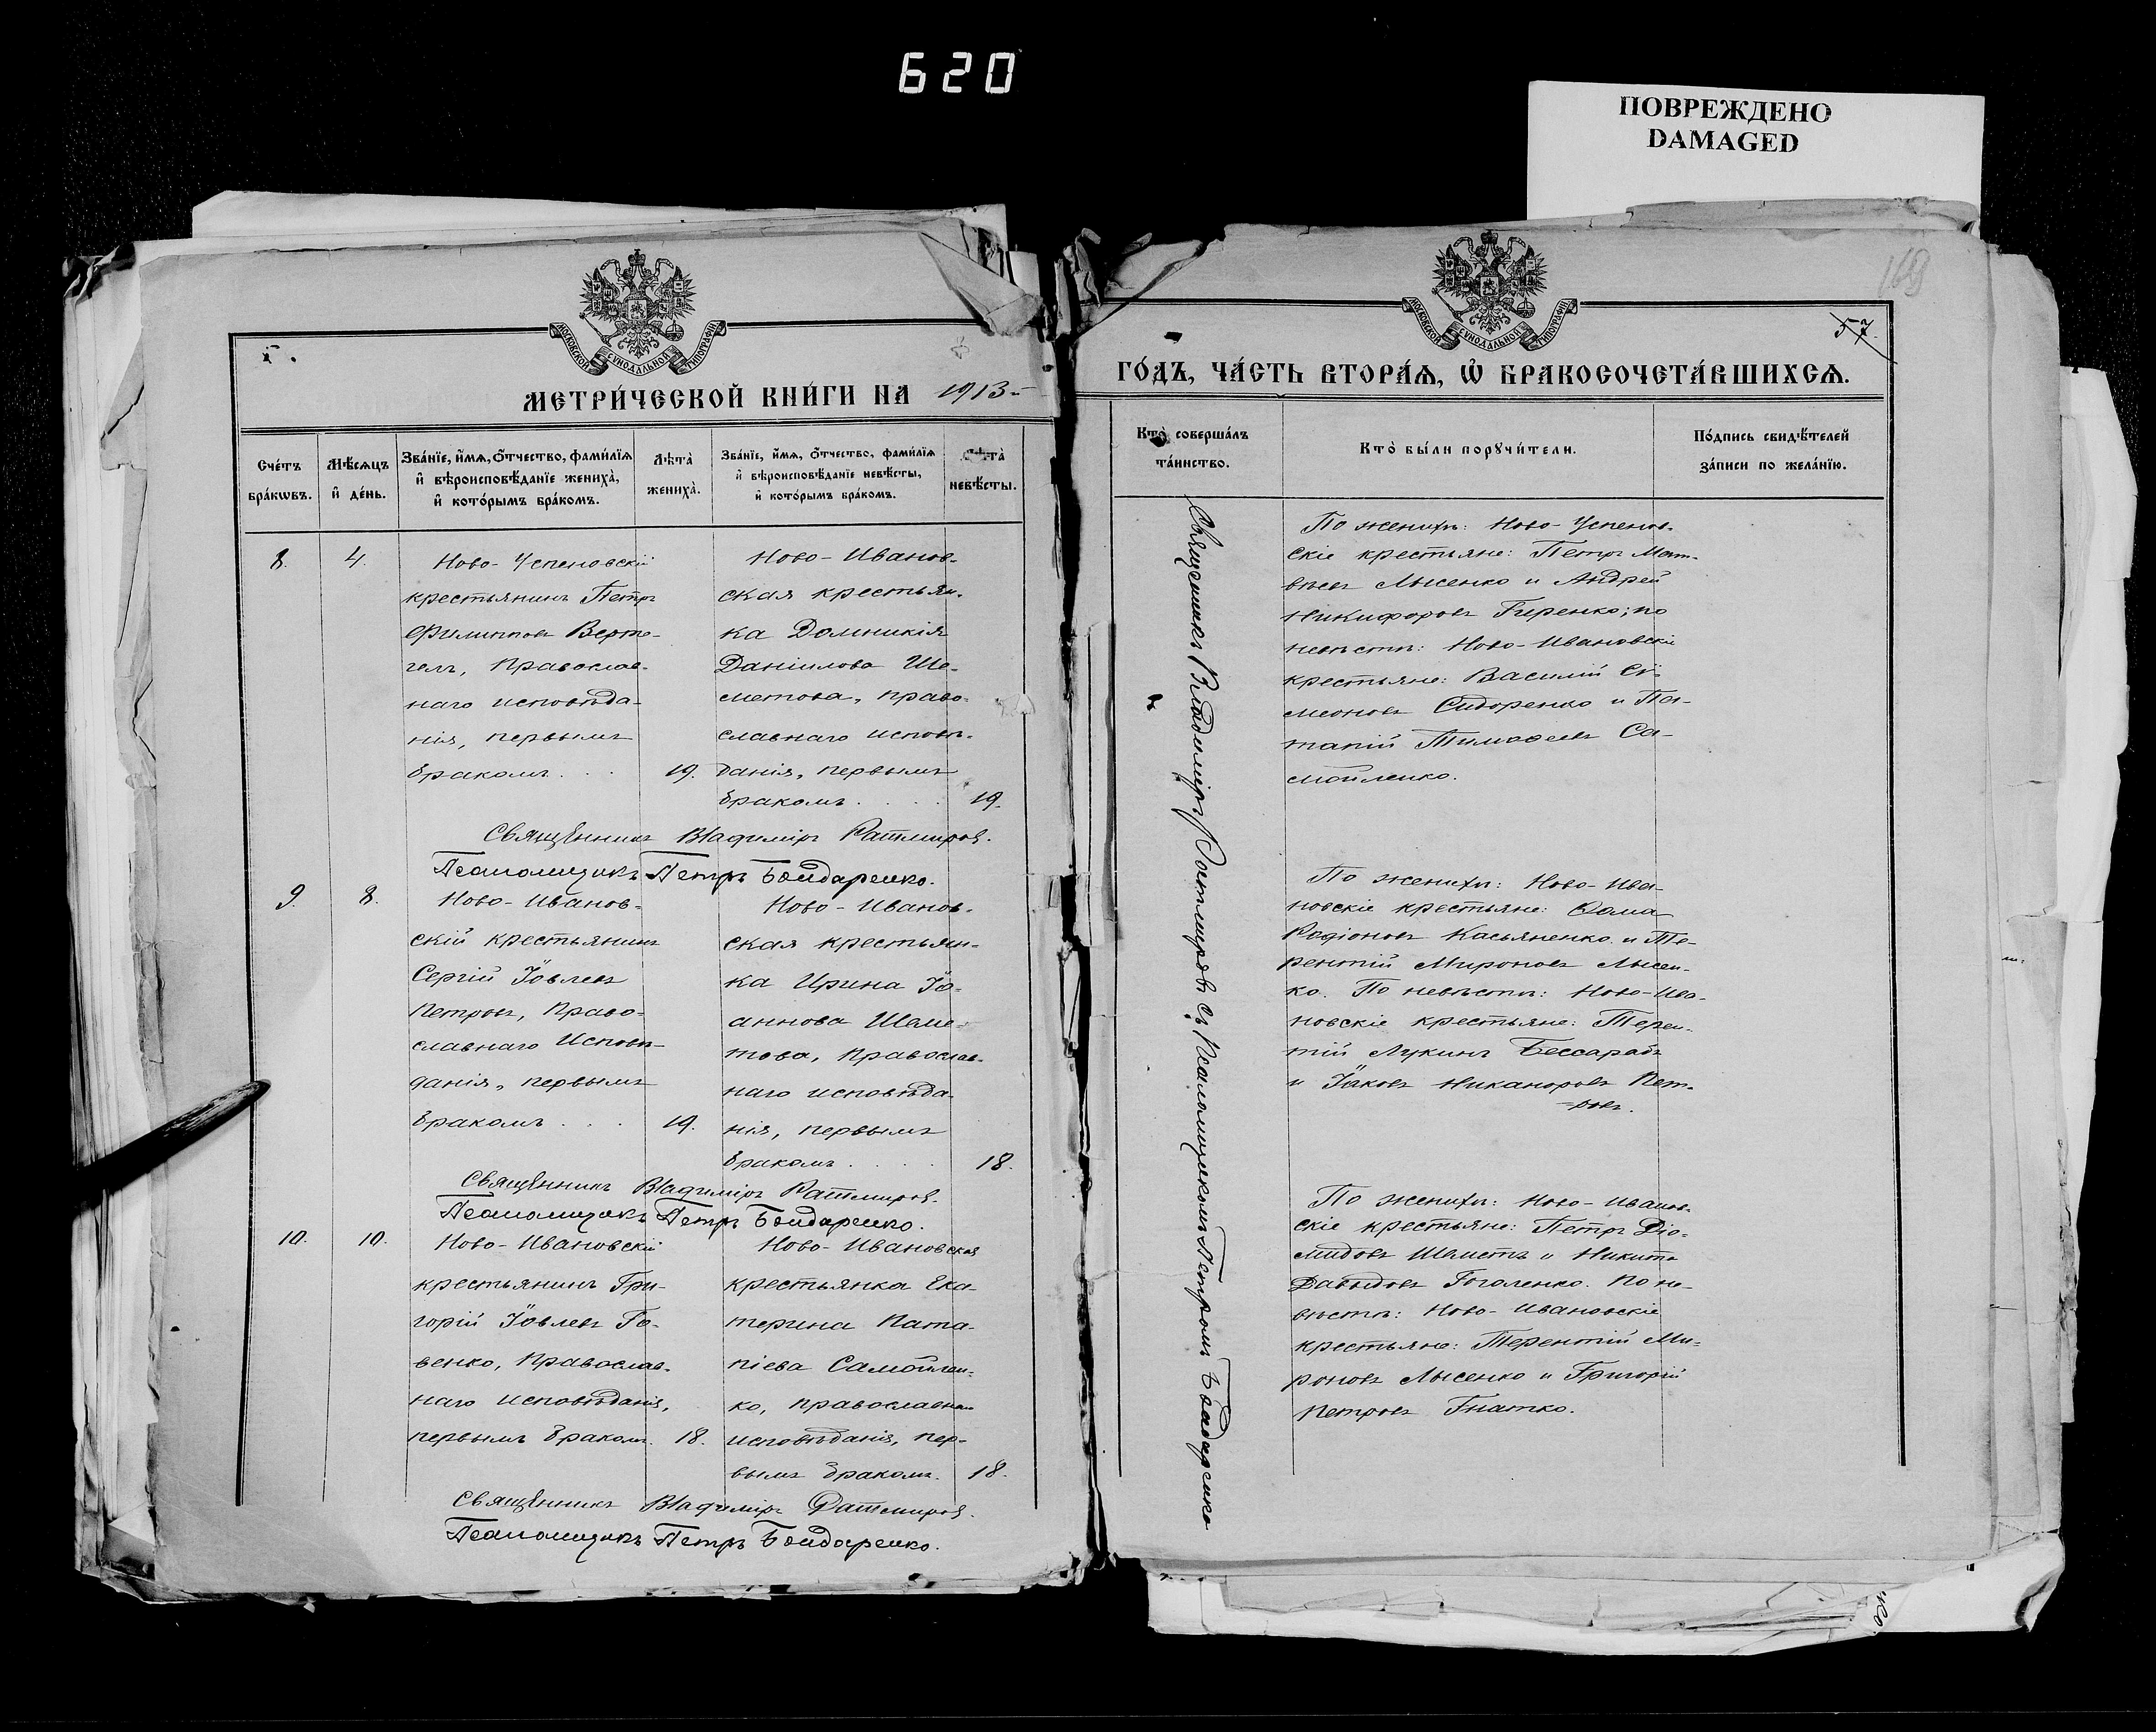 620
ПОВРЕЖДЕНО
DAMAGED
МОСКОВСКОЙ СѴНОДАЛЬНОЙ ТИПОГРАФІИ
МЕТРИ́ЧЕСКОЙ КНИ́ГИ НА 1913
Сче́тъ бра́кѡвъ.
Мѣ́сяцъ и҆ де́нь.
Зва́нїе, и҆́мя, ѻ҆́тчество, фами́лїя
и҆ вѣроисповѣ́данїе жениха̀,
и҆ кото́рымъ бра́комъ.
Лѣ́та̀ жениха̀.
Зва́нїе, и҆́мя, ѻ҆́тчество, фами́лїя
и҆ вѣроисповѣ́данїе невѣ́сты,
и҆ кото́рымъ бра́комъ.
Лѣ́та̀ невѣ́сты.
8.
4.
Ново-Успеновскій
крестьянинъ Петръ
Филипповъ Верте-
гелъ, Православ-
наго исповѣда-
нія, первымъ
бракомъ . . .
19.
Ново-Иванов-
ская крестьян-
ка Домникія
Даніилова Ше-
метова, право-
славнаго исповѣ-
данія, первымъ
бракомъ . . . .
19.
Священникъ Владиміръ Ратмировъ.
Псаломщикъ Петръ Бондаренко.
9.
8.
Ново-Иванов-
скій крестьянинъ
Сергій Іовлевъ
Петровъ, Право-
славнаго Исповѣ-
данія, первымъ
бракомъ . . .
19.
Ново-Иванов-
ская крестьян-
ка Ирина Іо-
аннова Шеме-
това, Православ-
наго исповѣда-
нія, первымъ
бракомъ . . . .
18.
Священникъ Владиміръ Ратмировъ.
Псаломщикъ Петръ Бондаренко.
10.
10.
Ново-Ивановскій
крестьянинъ Гри-
горій Іовлевъ Го-
венко, Православ-
наго исповѣданія,
первымъ бракомъ.
18.
Ново-Ивановская
крестьянка Ека-
терина Пата-
піева Самойлен-
ко, православнаго
исповѣданія, пер-
вымъ бракомъ.
18.
Священникъ Владиміръ Ратмировъ.
Псаломщикъ Петръ Бондаренко.
МОСКОВСКОЙ СѴНОДАЛЬНОЙ ТИПОГРАФІИ
57.
ГО́ДЪ, ЧА́СТЬ ВТОРА́Я, Ѽ БРАКОСОЧЕТА́ВШИХСЯ.
Кто̀ соверша́лъ
та́инство.
Кто̀ бы́ли порꙋчи́тели.
По́дпись свидѣ́телей
за́писи по жела́нїю.
Священникъ Владиміръ Ратмировъ съ Псаломщикомъ Петромъ Бондаренко
По женихѣ: Ново-Успенов-
скіе крестьяне: Петръ Мат-
вѣевъ Лысенко и Андрей
Никифоровъ Гиренко; по
невѣстѣ: Ново-Ивановскіе
крестьяне: Василій Сі-
меоновъ Сидоренко и Па-
тапій Тимофеевъ Са-
мойленко.
По женихѣ: Ново-Ива-
новскіе крестьяне: Ѳома
Родіоновъ Касьяненко и Те-
рентій Мироновъ Лысен-
ко. По невѣстѣ: Ново-Ива-
новскіе крестьяне: Терен-
тій Лукинъ Бессарабъ
и Іаковъ Никаноровъ Пет-
ровъ.
По женихѣ: Ново-Иванов-
скіе крестьяне: Петръ Діо-
мидовъ Шеметъ и Никита
Давыдовъ Гоголенко. По не-
вѣстѣ: Ново-Ивановскіе
крестьяне: Терентій Ми-
роновъ Лысенко и Григорій
Петровъ Гнатко.